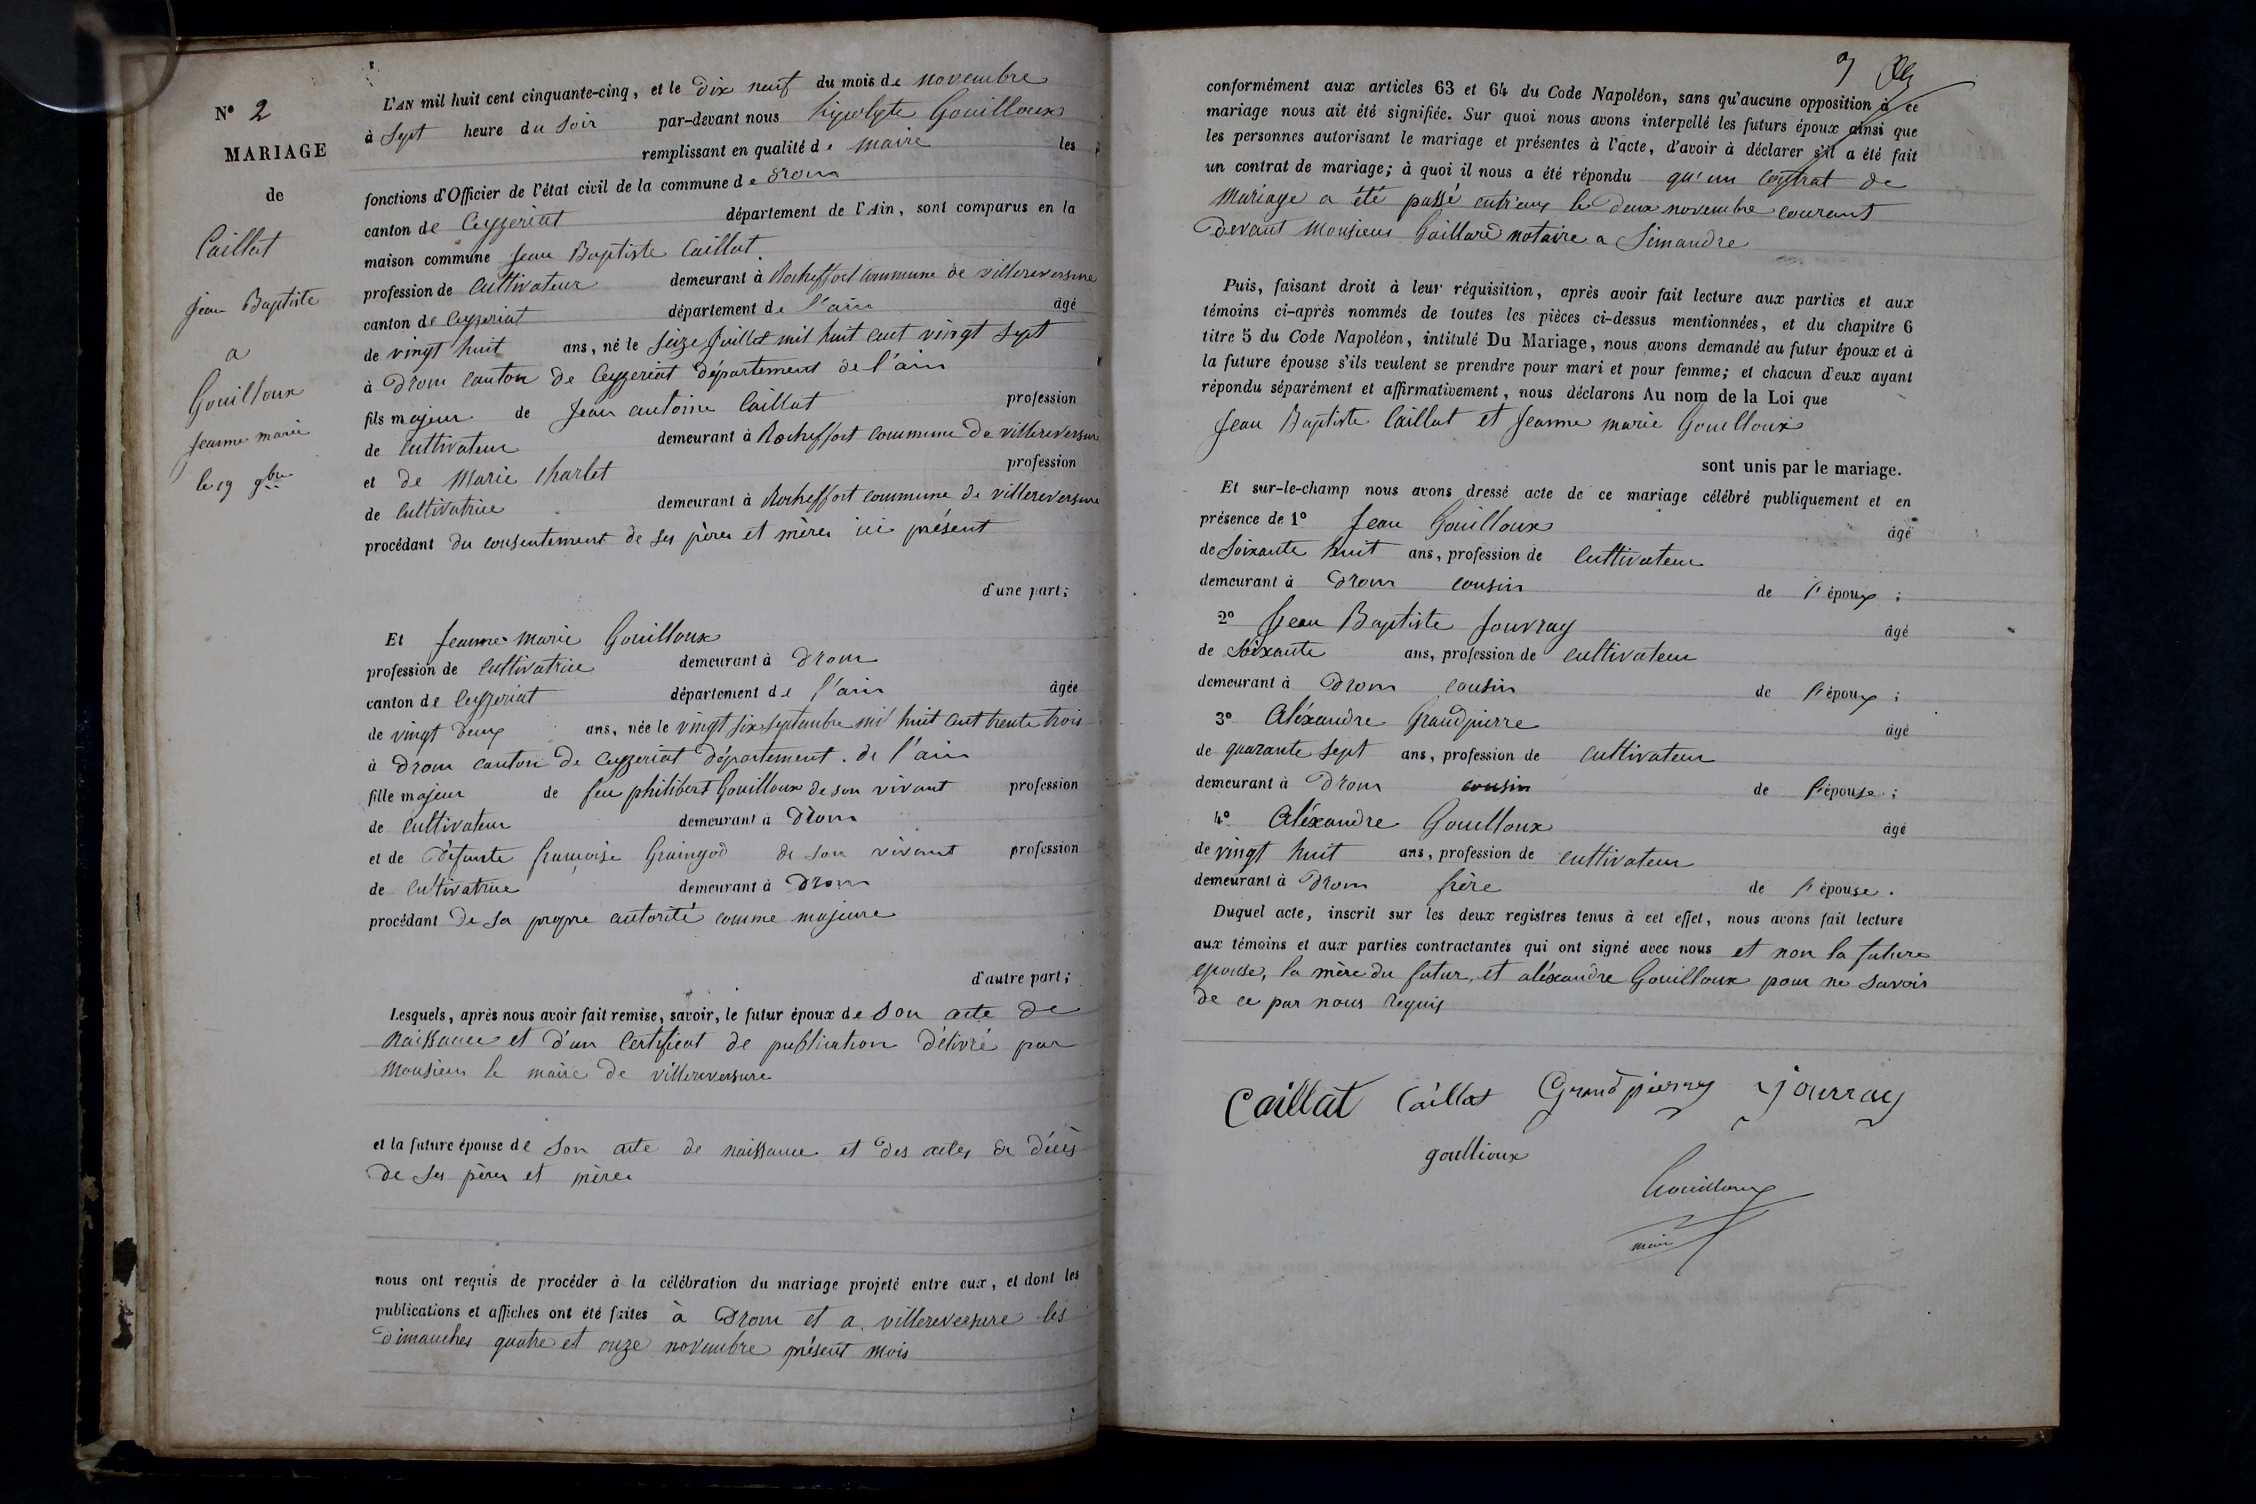 N° 2
MARIAGE
de
Caillat
Jean Baptiste
a
Gouilloux
Jeanne marie
le 19 9bre
L'AN mil huit cent cinquante-cinq, et le dix neuf du mois de novembre
à Sept heure du Soir par-devant nous hipolyte Gouilloux
remplissant en qualité de maire les
fonctions d'Officier de l'état civil de la commune de drom
canton de Ceyzeriat département de l'Ain, sont comparus en la
maison commune Jean Baptiste Caillat
profession de Cultivateur demeurant à Rocheffort commune de villereversure
canton de Ceyzeriat département de l'ain âgé
de vingt huit ans, né le Seize Juillet mil huit cent vingt Sept
à Drom canton de Ceyzeriat département de l'ain
fils majeur de Jean antoine Caillat profession
de Cultivateur demeurant à Rocheffort commune de villereversure
et de Marie Charlet profession
de Cultivatrice demeurant à Rocheffort commune de villereversure
procédant du consentement de ses pères et mères ici présent
d'une part;
Et Jeanne marie Gouilloux
profession de Cultivatrice demeurant à Drom
canton de Ceyzeriat département de l'ain âgée
de vingt deux ans, née le vingt six septembre mil huit cent trente trois
à Drom canton de Ceyzeriat département de l'ain
fille majeur de feu philibert Gouilloux de son vivant profession
de Cultivateur demeurant à Drom
et de Défunte françoise Graingod de son vivant profession
de Cultivatrice demeurant à Drom
procédant de sa propre autorité comme majeure
d'autre part;
Lesquels, après nous avoir fait remise, savoir, le futur époux de Son acte de
Naissance et d'un Certificat de publication délivré par
Monsieur le maire de villereversure
et la future épouse de Son acte de naissance et des actes de décès
de ses pères et mères
nous ont requis de procéder à la célébration du mariage projeté entre eux, et dont les
publications et affiches ont été faites à Drom et a villereversure les
dimanches quatre et onze novembre présent mois
conformément aux articles 63 et 64 du Code Napoléon, sans qu'aucune opposition à ce
mariage nous ait été signifiée. Sur quoi nous avons interpellé les futurs époux ainsi que
les personnes autorisant le mariage et présentes à l'acte, d'avoir à déclarer s'il a été fait
un contrat de mariage; à quoi il nous a été répondu qu'un contrat de
Mariage a été passé entr'eux le deux novembre courant
Devant Monsieur Gaillard notaire a Simandre
Puis, faisant droit à leur réquisition, après avoir fait lecture aux parties et aux
témoins ci-après nommés de toutes les pièces ci-dessus mentionnées, et du chapitre 6
titre 5 du Code Napoléon, intitulé Du Mariage, nous avons demandé au futur époux et à
la future épouse s'ils veulent se prendre pour mari et pour femme; et chacun d'eux ayant
répondu séparément et affirmativement, nous déclarons Au nom de la Loi que
Jean Baptiste Caillat et Jeanne marie Gouilloux
sont unis par le mariage.
Et sur-le-champ nous avons dressé acte de ce mariage célébré publiquement et en
présence de 1° Jean Gouilloux âgé
de Soixante huit ans, profession de Cultivateur
demeurant à Drom cousin de l'époux;
2° Jean Baptiste Jouvray âgé
de Soixante ans, profession de cultivateur
demeurant à Drom cousin de l'époux;
3° Aléxandre Grandpierre âgé
de quarante Sept ans, profession de cultivateur
demeurant à Drom cousin de l'épouse;
4° Aléxandre Gouilloux âgé
de vingt huit ans, profession de cultivateur
demeurant à Drom frère de l'épouse.
Duquel acte, inscrit sur les deux registres tenus à cet effet, nous avons fait lecture
aux témoins et aux parties contractantes qui ont signé avec nous et non la future
epouse, la mère du futur, et aléxandre Gouilloux pour ne savoir
de ce par nous Requis
Caillat Caillat Grand pierre jouvray
goullioux
Gouilloux
maire